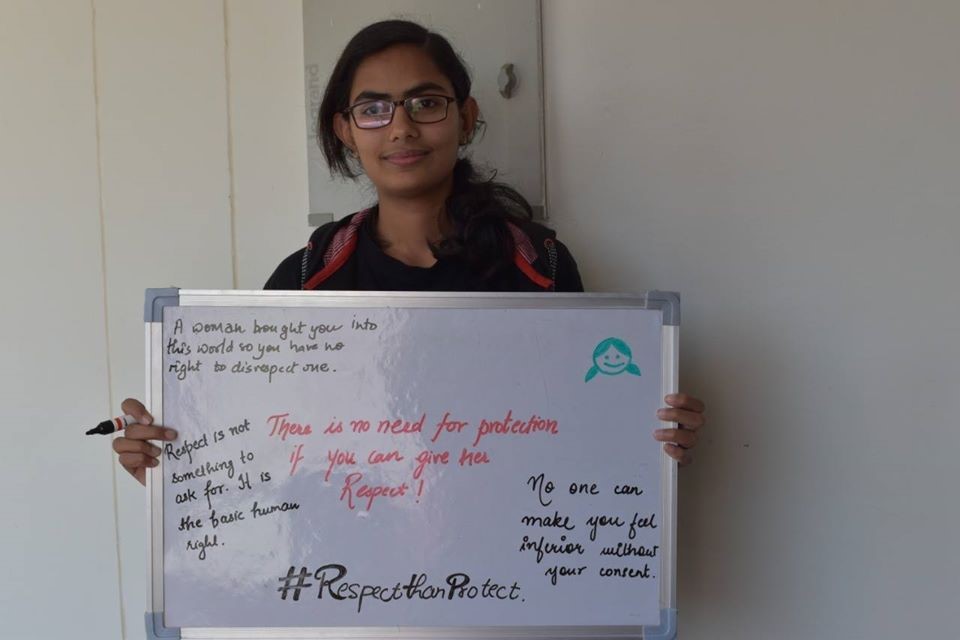 A woman bought you into
this world so you have no
right to disrespect one.
There is no need for protection
if you can give her
Respect!
Respect is not
something to
ask for. It is
the basic human
right.
No one can
make you feel
inferior without
your consent.
#RespectthanProtect.